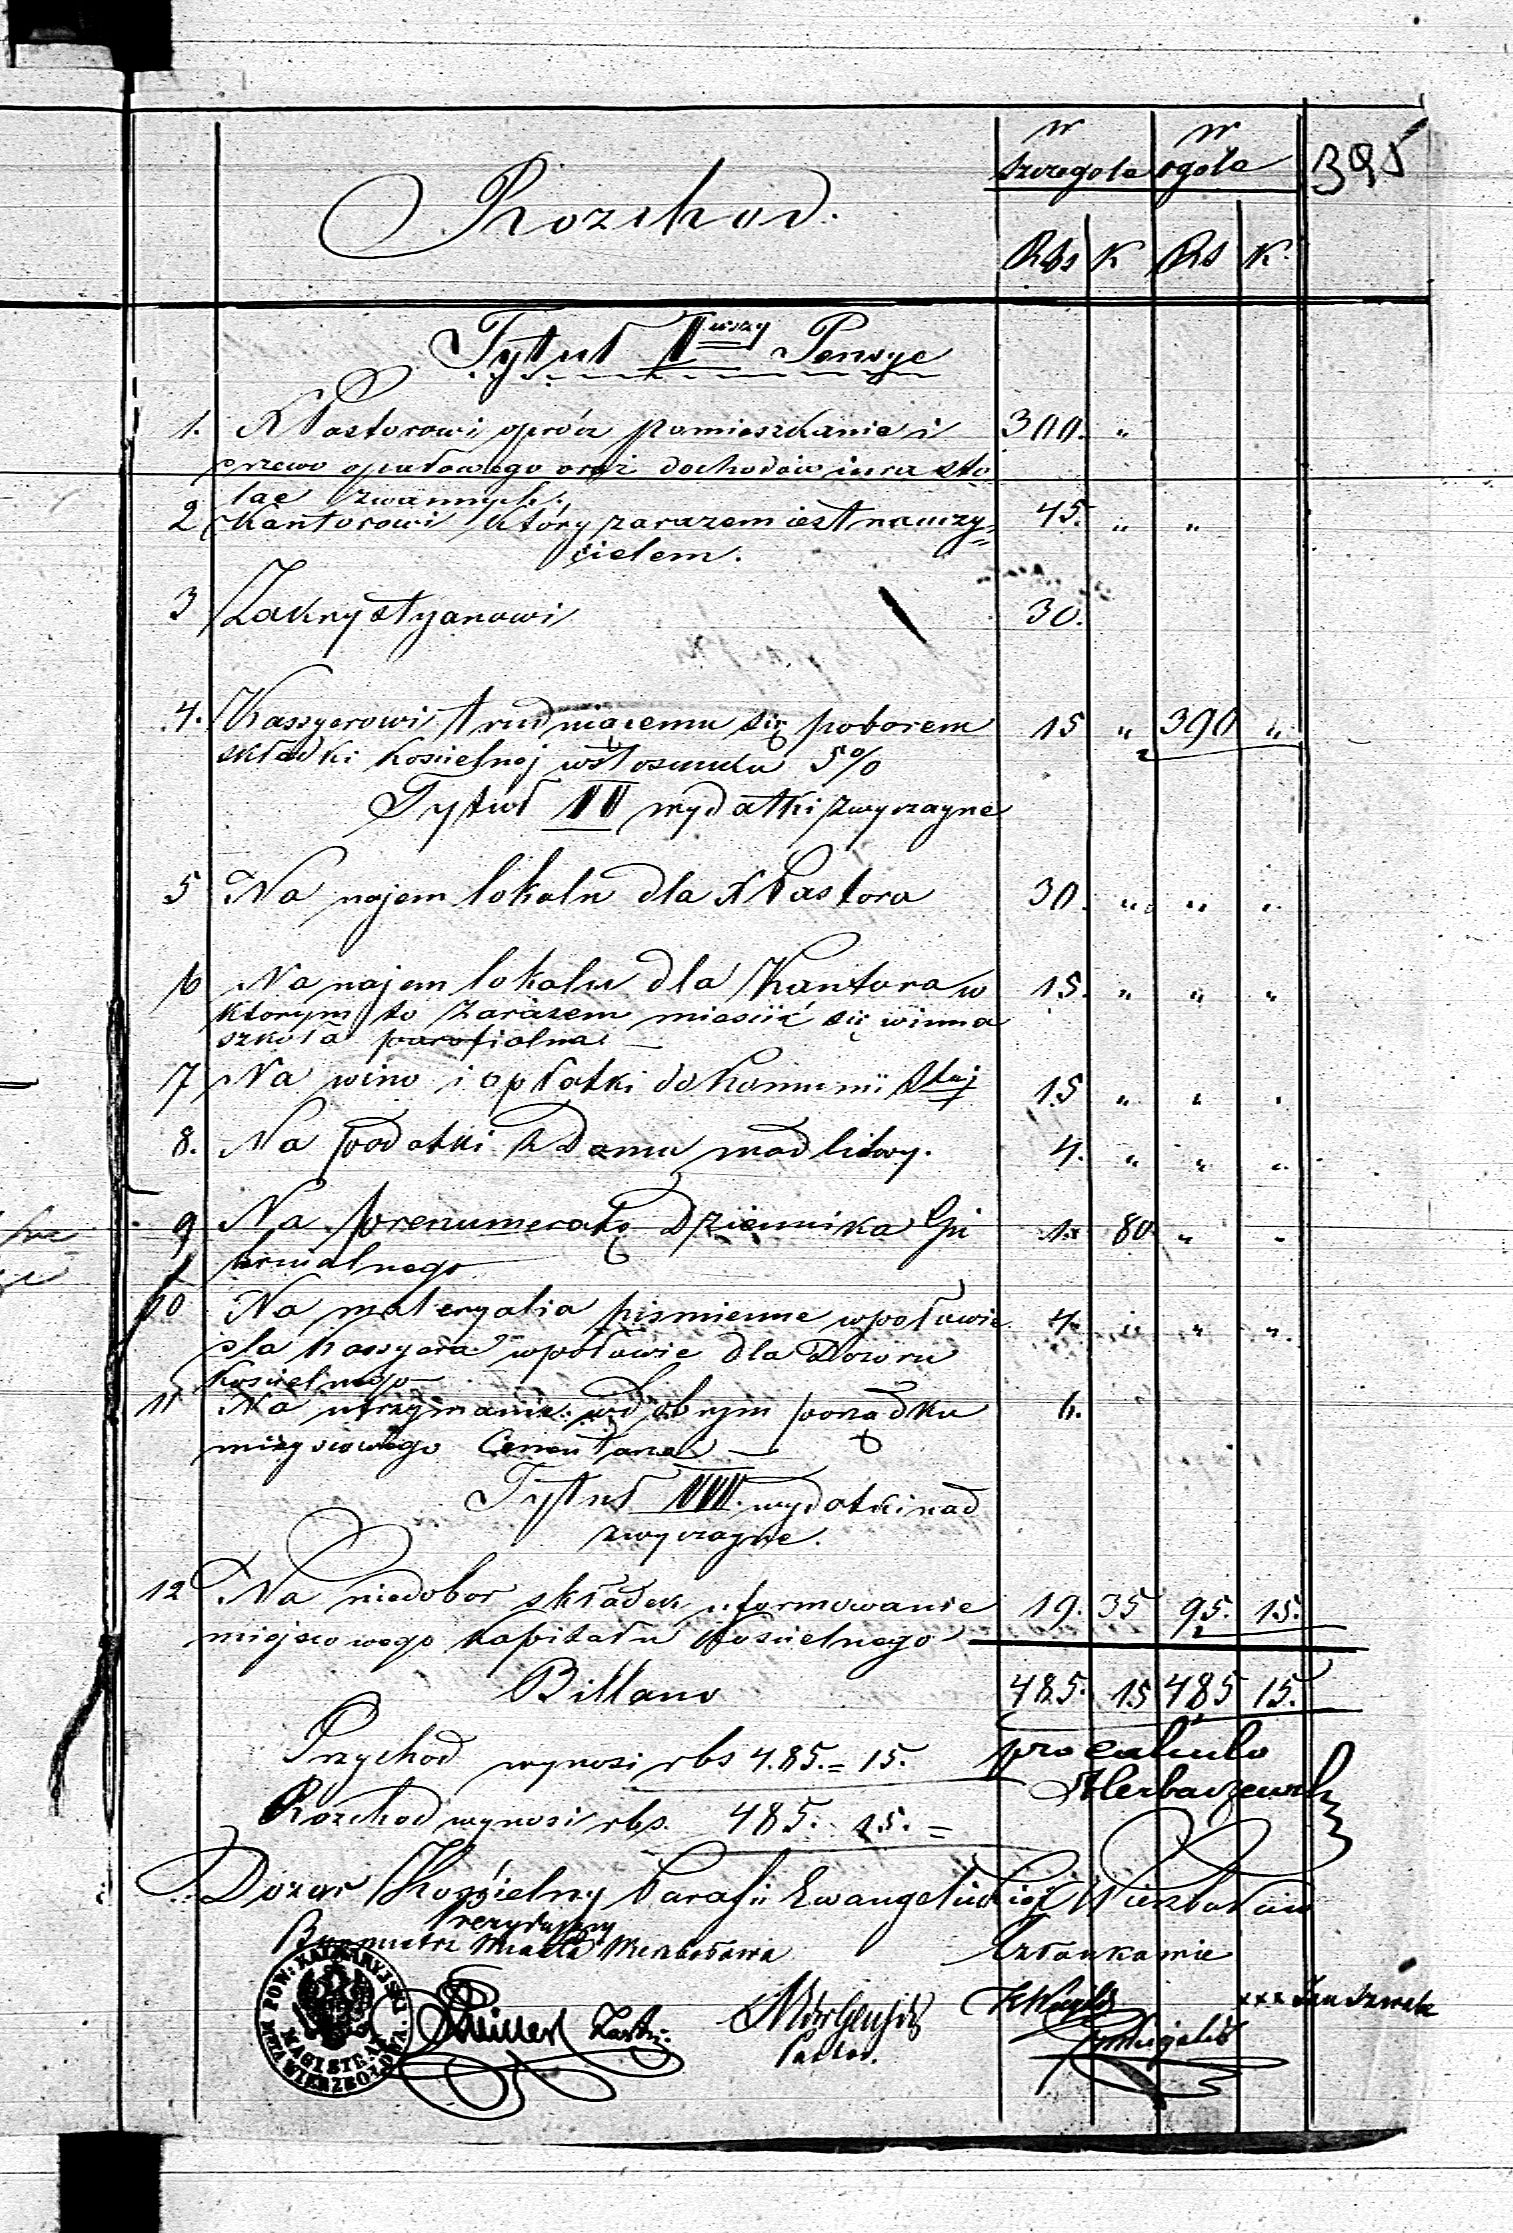 w w
szczegole ogóle 395
Rozchod.
Rbs K Rs K.
Tytuł I wszy Pensye
1. X Pastorowi oprócz pomieszkania i 300. "
drzewa opałowego oraz dochodów iura sto
lae zwannych.
2 Kantorowi który zarazem iest nauczy= 45. " "
cielem.
3 Zakrystyanowi 30.
4. Kassyerowi trudniącemu się poborem 15 " 390 "
składki kościelnej wstosunku 5%
Tytuł II wydatki zwyczayne
5 Na najem lokalu dla X Pastora 30. " " "
6 Na najem lokalu dla Kantora w 15. " " "
ktorym to zarazem mieścić się winna
szkoła parafialna
7 Na wino i opłatki do Komunii Stej 15 " " "
8. Na podatki z Domu modlitwy. 4. " " "
9 Na prenumeratę Dziennika Gu 1. 80. " "
bernialnego
10 Na materyalia piśmienne wpołowie 4. " " "
dla Kassyera wpołowie dla Dozoru
Kościelnego
11 Na utrzymanie w dobrym porządku 6.
mieyscowego Cmentarza
Tytuł III. wydatki nad
zwyczayne.
12 Na niedobor składek uformowanie 19. 35 95. 15.
miejscowego kapitału Kościelnego
Billans 485. 15 485 15.
Przychod wynosi rbs 485.= 15. pro calculo
Rozchod wynosi rbs. 485. 15.=
Dozór Kościelny Parafii Ewangelickiej Wierzbołów
Prezydujący
Burmistrz Miasta Wierzbołowa Członkowie
POW: KALWARYJSKI
MAGISTRAT
MTA WIERZBOŁOWA
xxx
Pastor.